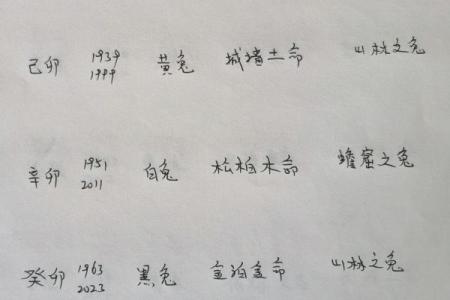 己卯 1939 1999 黄兔 城墙土命 山林之兔
辛卯 1951 2011 白兔 松柏木命 蟾窟之兔
癸卯 1963 2023 黑兔 金泊金命 山林之兔